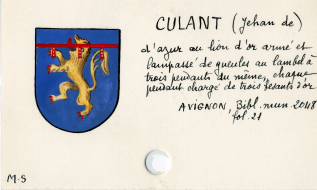 CULANT (Jehan de)
d'azur au lion d'or armé et
lampassé de gueules au lambel à
trois pendants du même, chaque
pendant chargé de trois besants d'or
AVIGNON, Bibl. mun. 2048
fol. 21
M.S